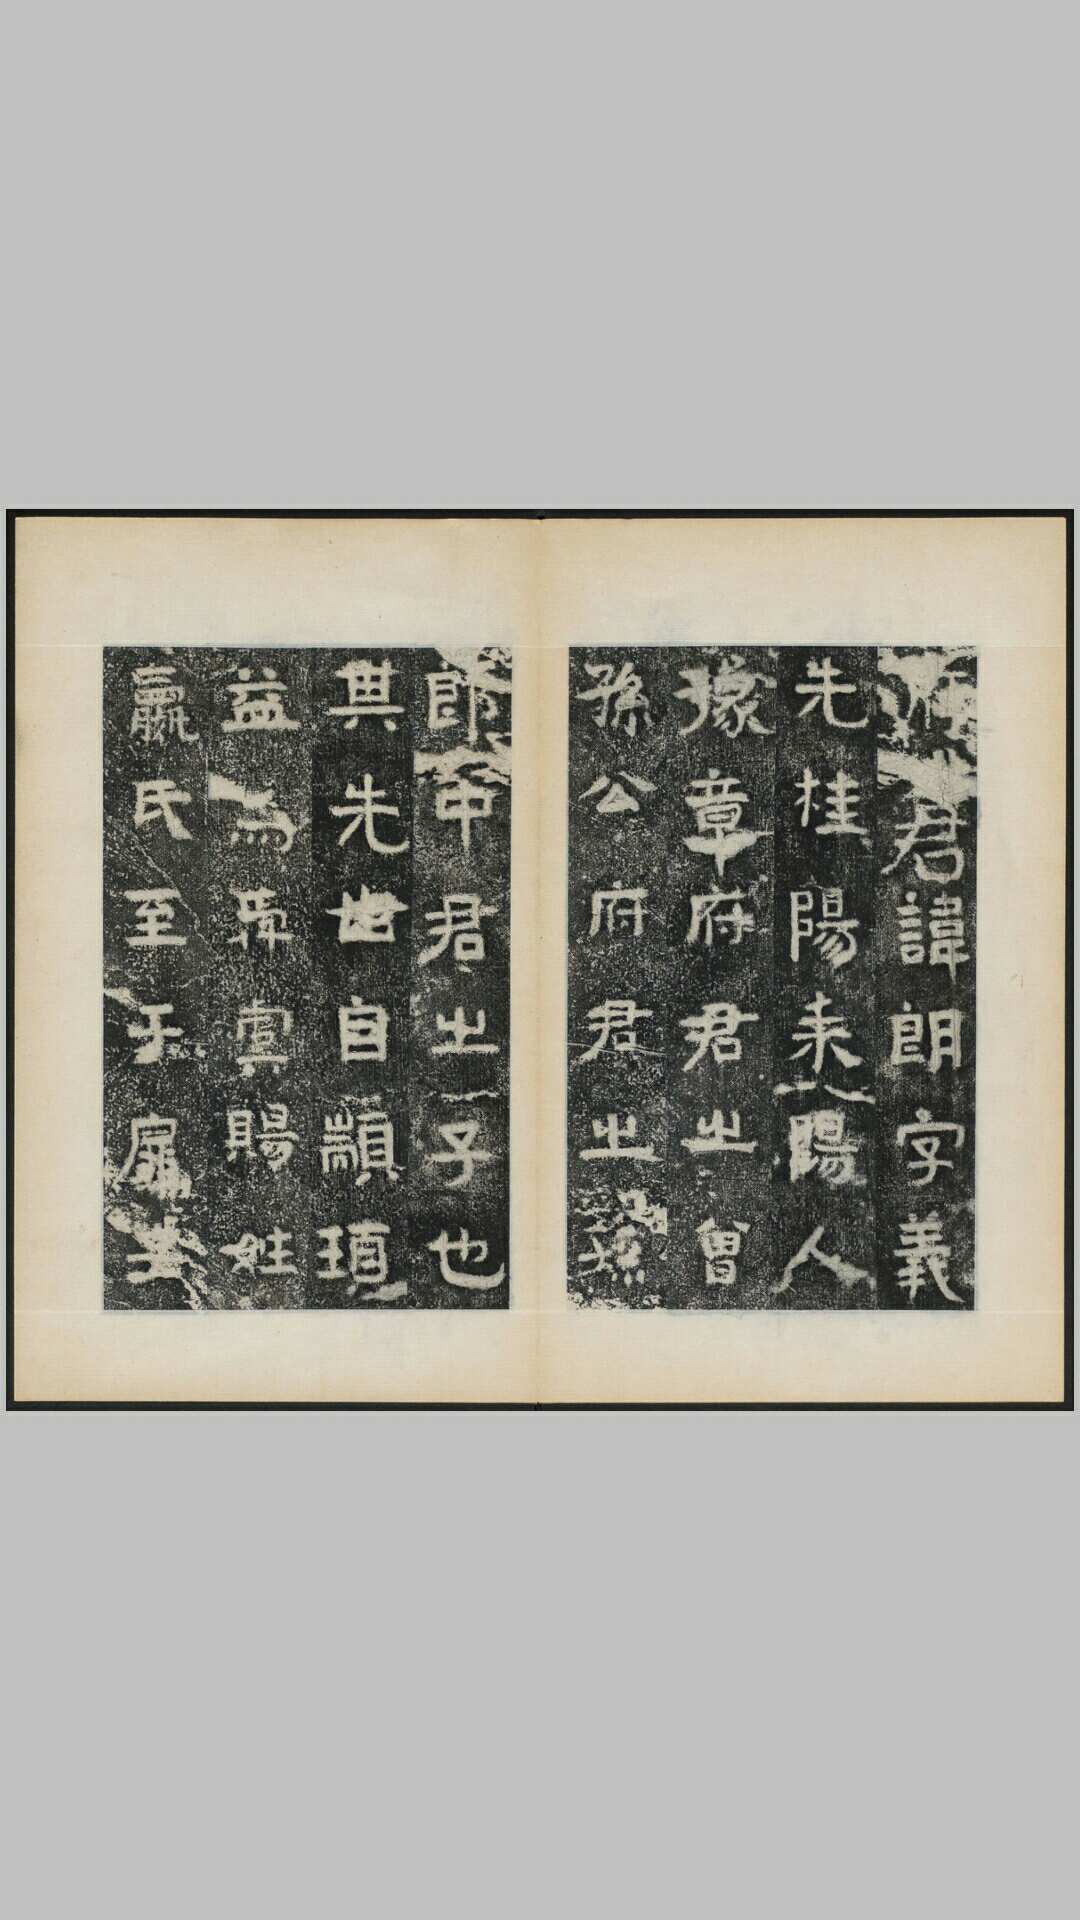 府君諱朗字義
先桂陽耒陽人
豫章府君之曾
孫公府君之孫
郎中君之子也
其先世自顓頊
益為舜虞賜姓
嬴氏至于扉